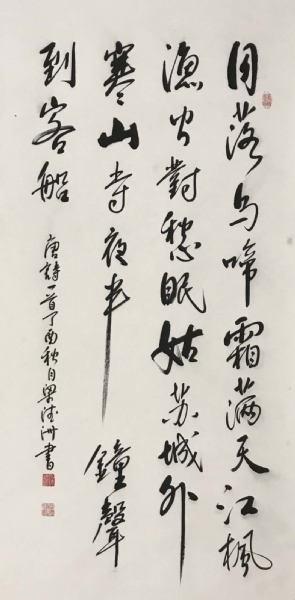 月落乌啼霜满天江楓
渔火對愁眠姑苏城外
寒山寺夜半鐘聲
到客船
唐詩一首丁酉秋月梁洲書